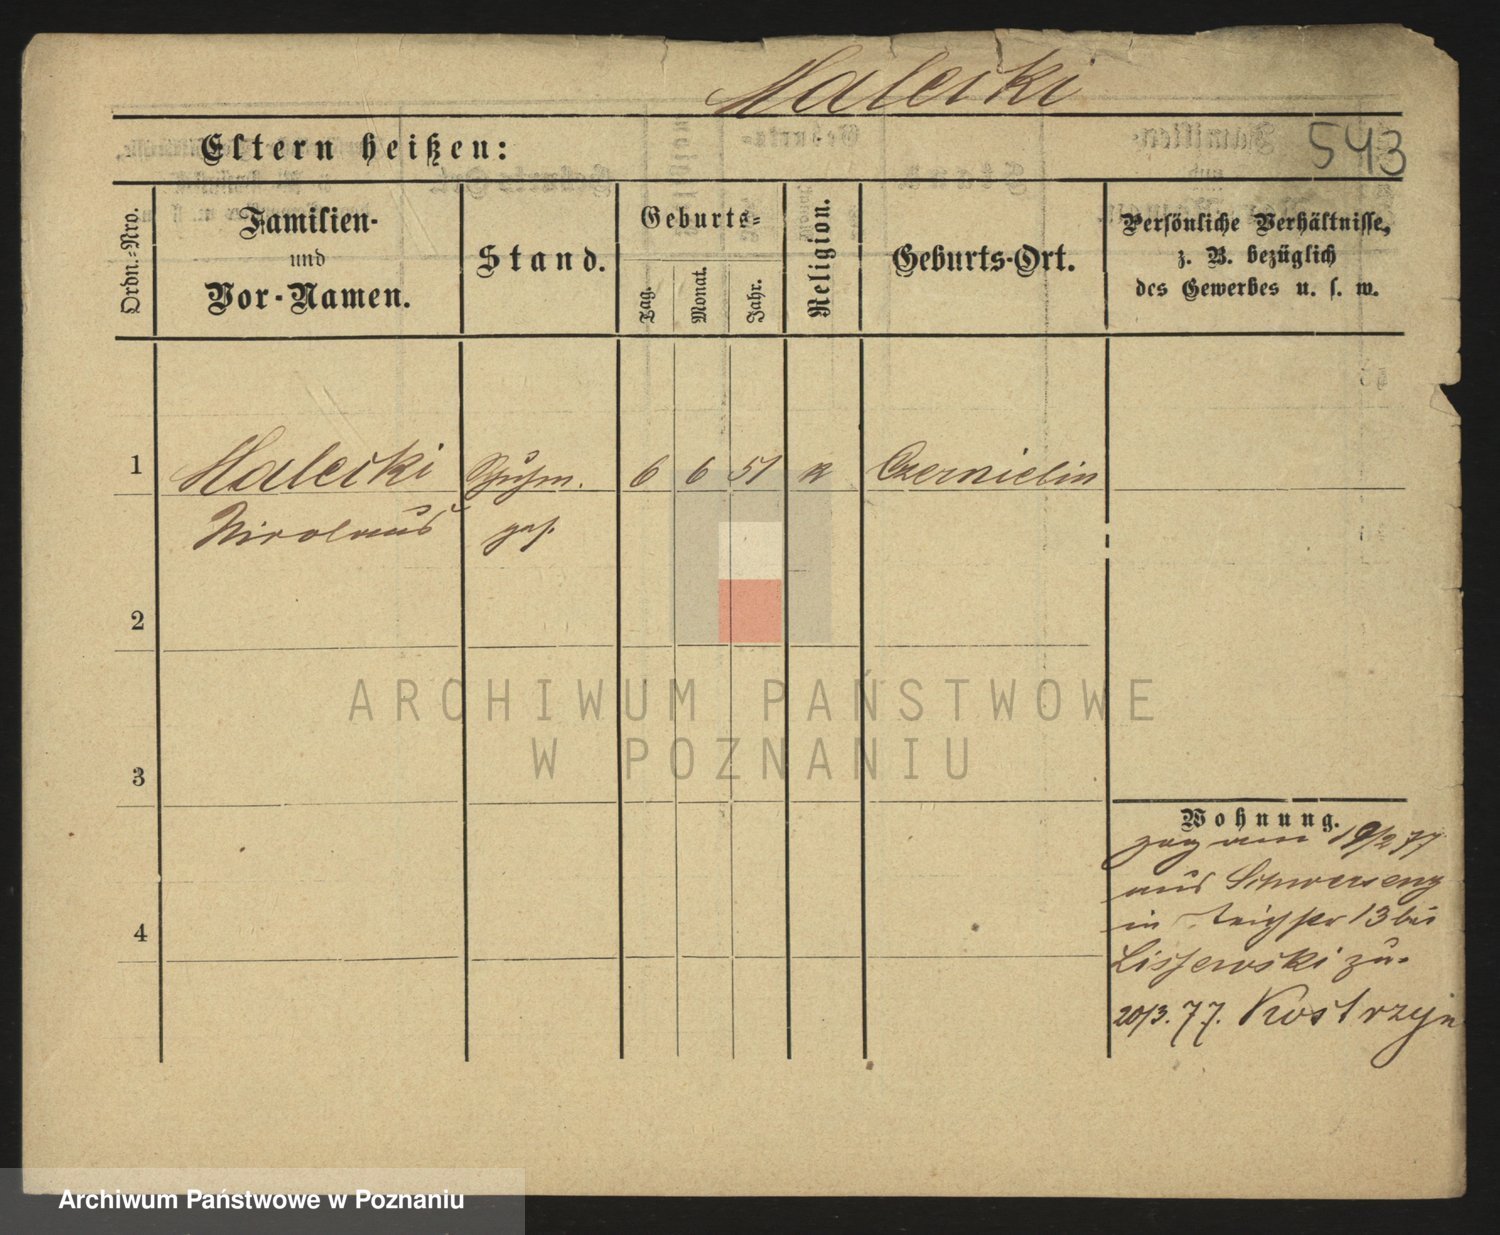 Malecki
543
Eltern heißen:
Ordn.-Nro.
Familien-
und
Vor-Namen.
Stand.
Geburts-
Tag.
Monat.
Jahr.
Religion.
Geburts-Ort.
Persönliche Verhältnisse,
z. B. bezüglich
des Gewerbes u. s. w.
1 Malecki Schuhm. 6 6 51 k Czernielin
Nicolaus ges.
2
3
4
Wohnung.
zog am 19/2 77
aus Schwersenz
in Teichstr 13 bei
Lissewski zu.
20/3. 77. Kostrzyn
ARCHIWUM PAŃSTWOWE
W POZNANIU
Archiwum Państwowe w Poznaniu